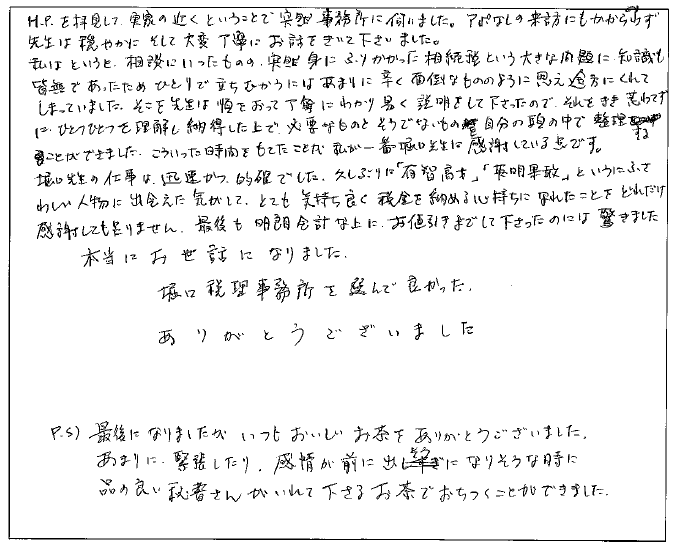 H.P.を拝見して、実家の近くということで突然事務所に伺いました。アポなしの来訪にもかかわらず
先生は穏やかに そして大変丁寧にお話をきいて下さいました。
私はというと、相談にいったものの、突然身にふりかかった相続税という大きな問題に、知識も
皆無であったため ひとりで立ちむかうには あまりに辛く面倒なもののように思え途方にくれて
しまっていました。そこを先生は順をおって丁寧にわかり易く説明をして下さったので、それをきき慌わてず
に、ひとつひとつを理解し納得した上で、必要なものとそうでないもの自分の頭の中で整理する
ことができました。こういった時間をもてたことが私が一番堀口先生に感謝している点です。
堀口先生の仕事は、迅速かつ的確でした。久しぶりに「有智高才」「英明果敢」というにふさ
わしい人物に出会えた気がして、とても気持ち良く税金を納める心持ちになれたことをどれだけ
感謝しても足りません。最後も明朗会計な上に、お値引きまでして下さったのには驚きました
本当にお世話になりました。
堀口税理事務所を選んで良かった。
ありがとうございました
P.S) 最後になりましたが いつもおいしいお茶をありがとうございました。
あまりに緊張したり、感情が前に出そうになりそうな時に
品の良い秘書さんがいれて下さるお茶でおちつくことができました。